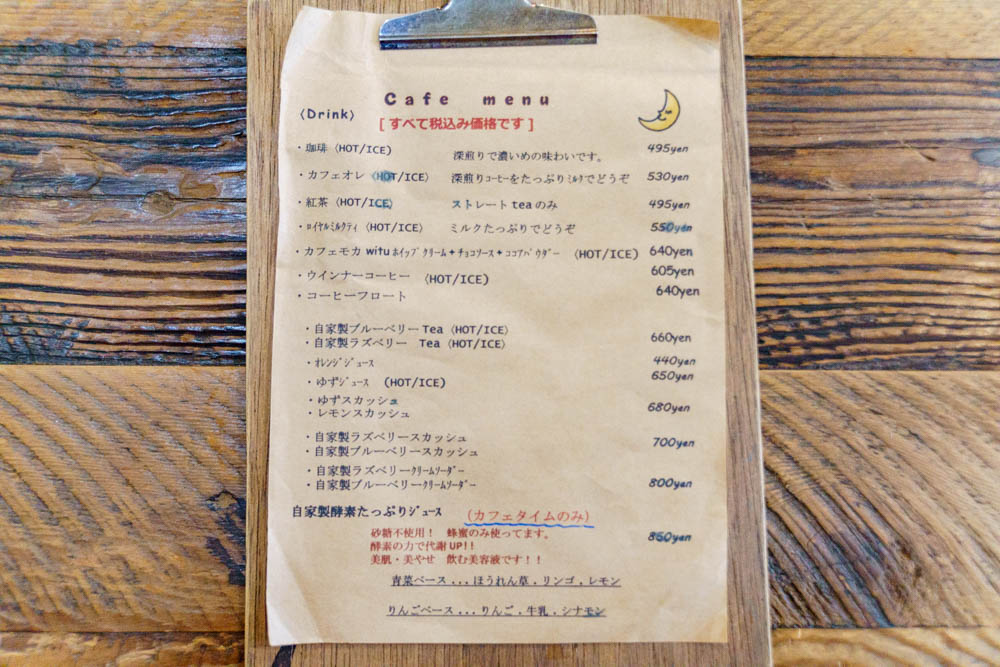 Cafe menu
〈Drink〉
[ すべて税込み価格です ]
・珈琲〈HOT/ICE〉 深煎りで濃いめの味わいです。 495yen
・カフェオレ〈HOT/ICE〉 深煎りｺｰﾋｰをたっぷりﾐﾙｸでどうぞ 530yen
・紅茶〈HOT/ICE〉 ストレート teaのみ 495yen
・ﾛｲﾔﾙﾐﾙｸﾃｨ〈HOT/ICE〉 ミルクたっぷりでどうぞ 550yen
・カフェモカ witu ﾎｲｯﾌﾟｸﾘｰﾑ+チョコソース+ココアﾊﾟｳﾀﾞｰ 〈HOT/ICE〉 640yen
・ウインナーコーヒー 〈HOT/ICE〉 605yen
・コーヒーフロート 640yen
・自家製ブルーベリーTea〈HOT/ICE〉
・自家製ラズベリー Tea〈HOT/ICE〉 660yen
・ｵﾚﾝｼﾞｼﾞｭｰｽ 440yen
・ゆずｼﾞｭｰｽ 〈HOT/ICE〉 650yen
・ゆずスカッシュ
・レモンスカッシュ 680yen
・自家製ラズベリースカッシュ 700yen
・自家製ブルーベリースカッシュ
・自家製ラズベリークリームｿｰﾀﾞｰ
・自家製ブルーベリークリームｿｰﾀﾞｰ 800yen
自家製酵素たっぷりｼﾞｭｰｽ (カフェタイムのみ)
砂糖不使用！ 蜂蜜のみ使ってます。 850yen
酵素の力で代謝UP!!
美肌・美やせ 飲む美容液です！！
青菜ベース...ほうれん草．リンゴ．レモン
りんごベース...りんご．牛乳．シナモン